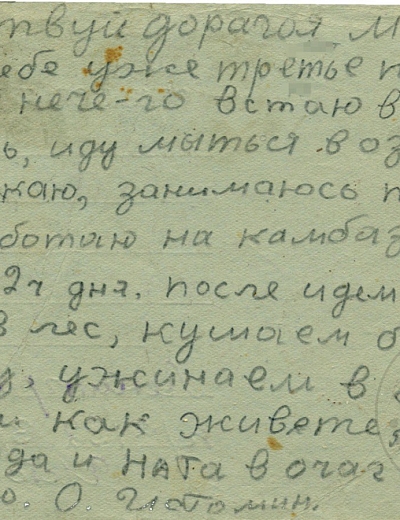 твуй дорагоя М
ебе уже третье п
нече-го встаю в
ь, иду мыться в оз
каю, занимаюсь п
ботаю на камбаз
2ч дня. после идем
в лес, кушаем о
у, ужинаем в
и как живете,
да и Ната в очаг
о. О